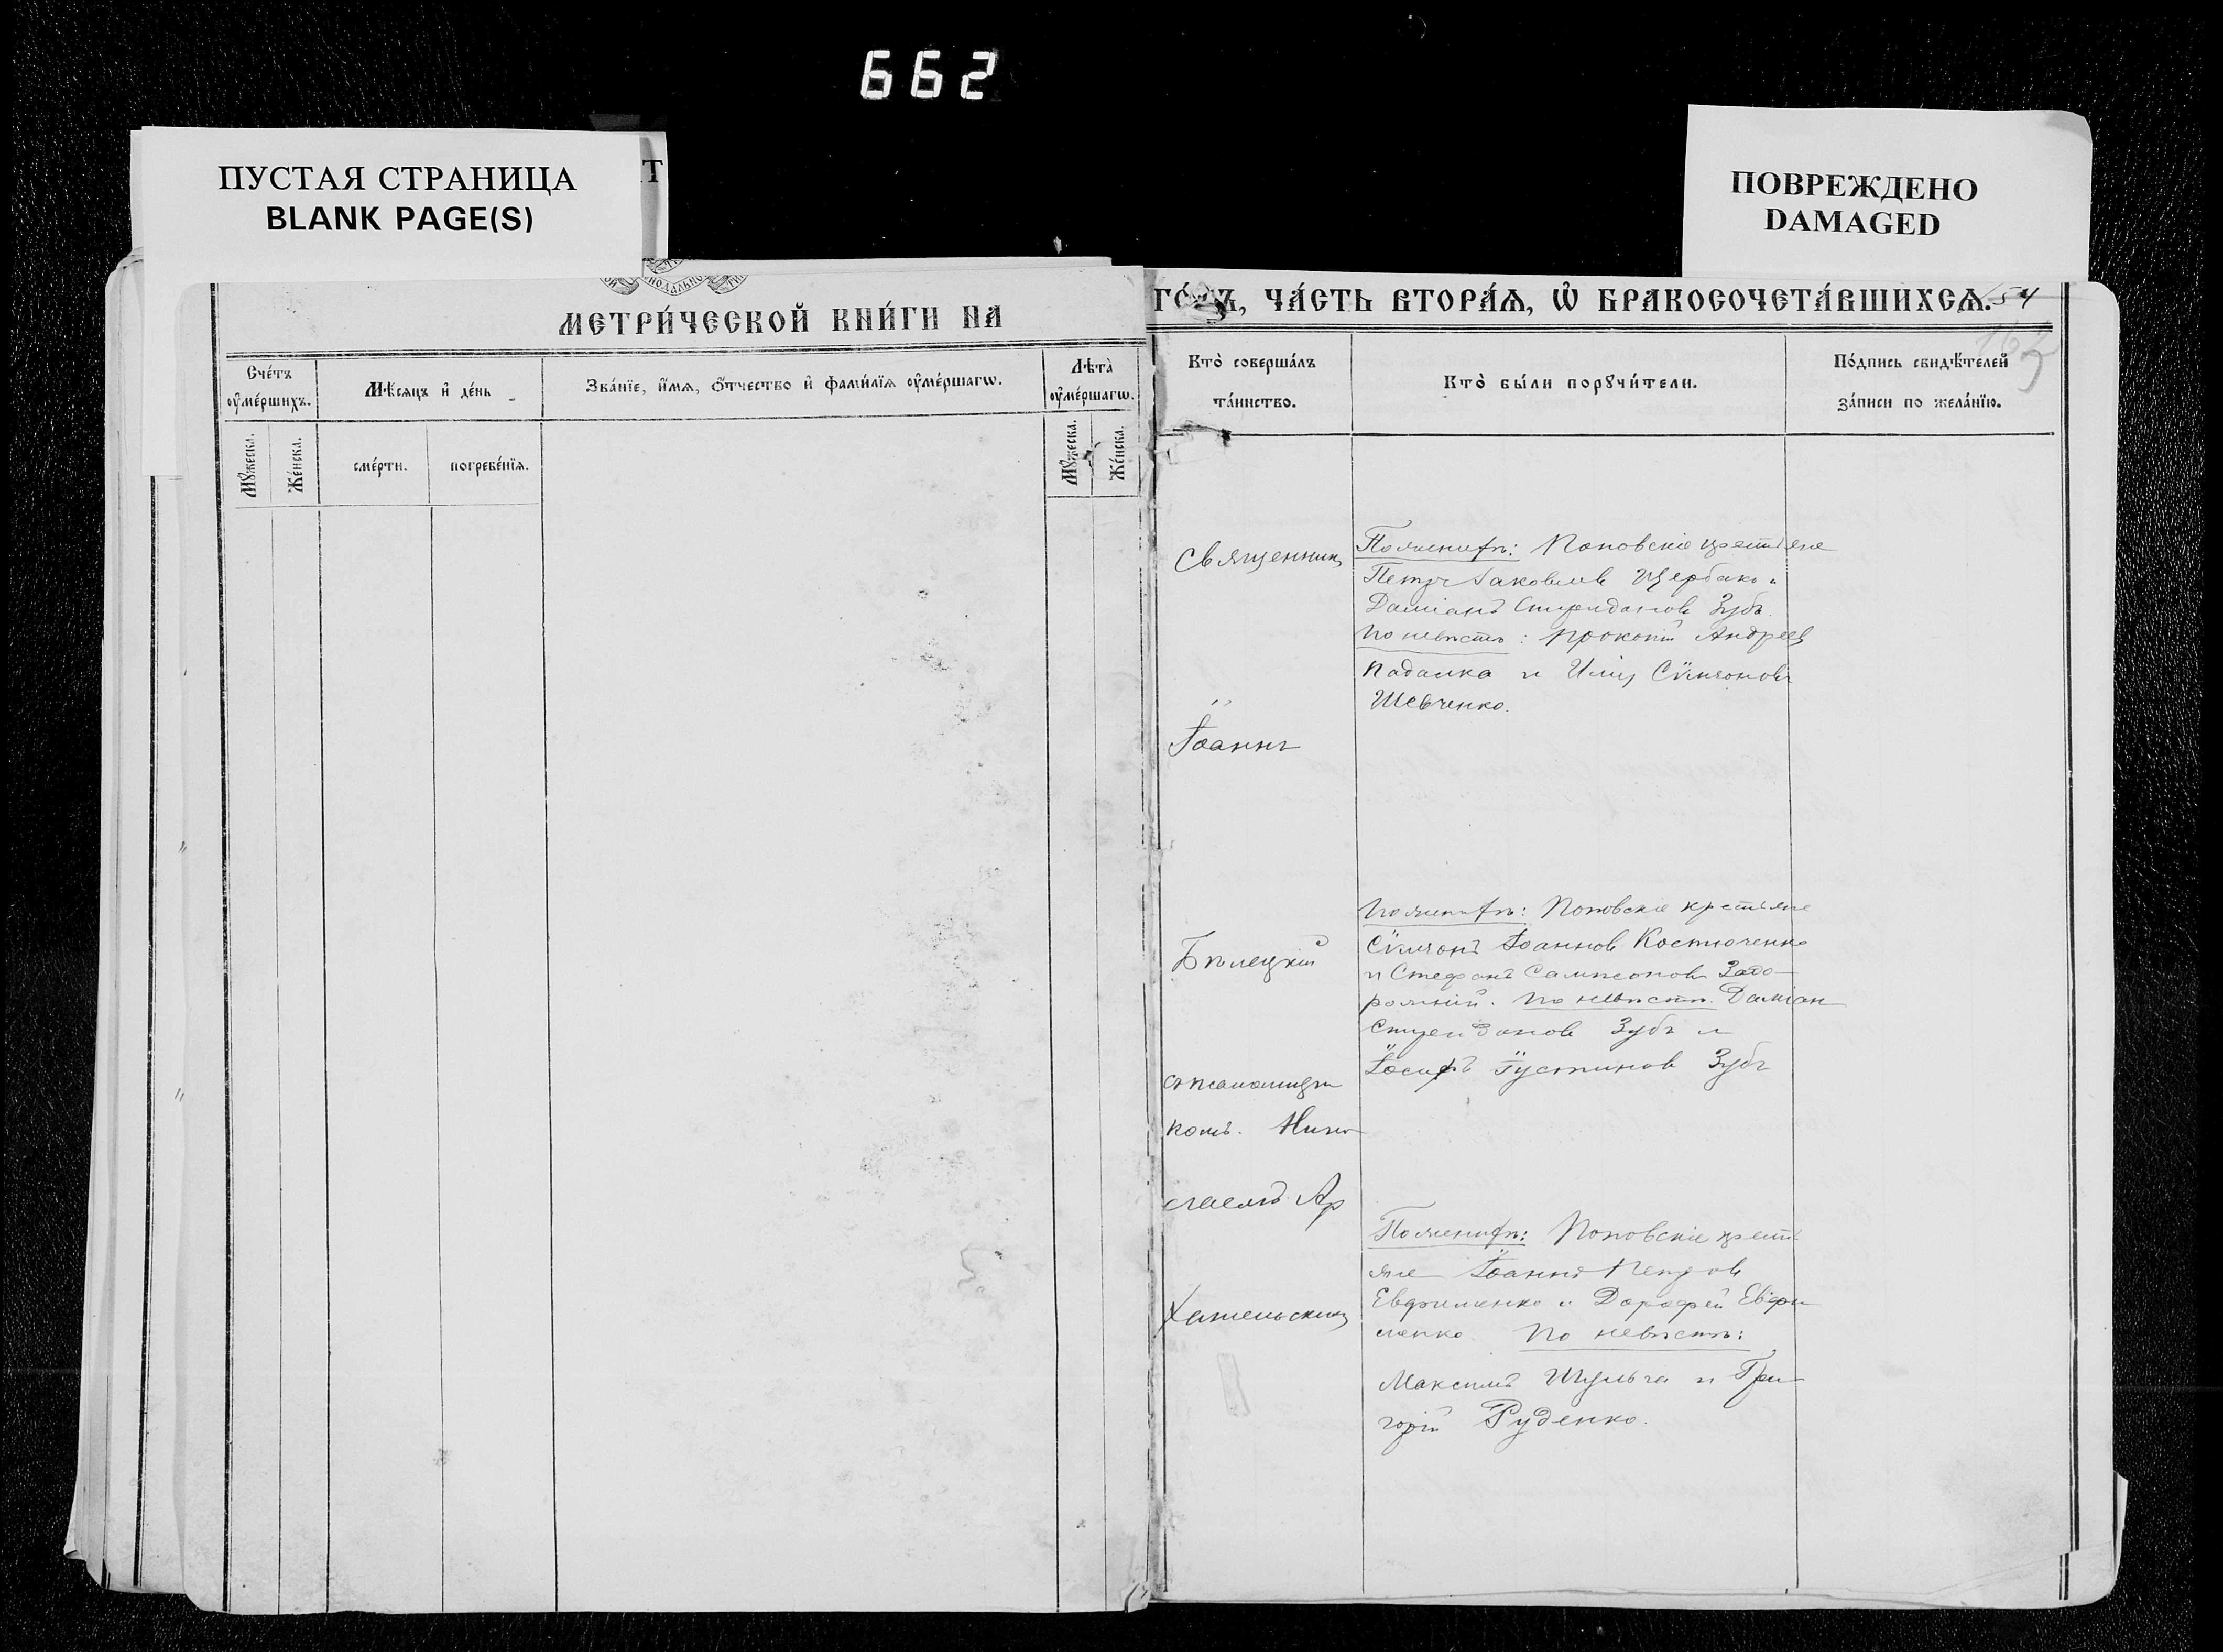 662
ПУСТАЯ СТРАНИЦА
BLANK PAGE(S)
ПОВРЕЖДЕНО
DAMAGED
МЕТРИ́ЧЕСКОЙ КНИ́ГИ НА
Сче́тъ ᲂу҆ме́ршихъ.
Мѣ́сяцъ и҆ де́нь
Зва́нїе, и҆́мѧ, ѻ҆́тчество и҆ фами́лїѧ ᲂу҆ме́ршагѡ.
Лѣта̀ ᲂу҆ме́ршагѡ.
Мꙋ́жеска.
Же́нска.
сме́рти.
погребе́нїѧ.
Мꙋ́жеска.
Же́нска.
ЧА́СТЬ ВТОРА́Ѧ, Ѡ҆ БРАКОСОЧЕТА́ВШИХСѦ.
154
Кто̀ соверша́лъ
та́инство.
Кто̀ бы́ли порꙋчи́тели.
По́дпись свидѣ́телей
за́писи по жела́нїю.
Священникъ
Іоаннъ
Бѣлецкій
съ псаломщи
комъ.
По женихѣ: Поповскіе крестьяне
Петръ Іаковлевъ Щербако и
Даміанъ Спиридоновъ Зубъ.
По невѣстѣ: Прокопій Андреевъ
Падалка и Илія Сѵмеоновъ
Шевченко.
По женихѣ: Поповскіе крестьяне
Сѵмеонъ Іоанновъ Костюченко
и Стефанъ Сампсоновъ Задо-
рожній. По невѣстѣ. Даміанъ
Спиридоновъ Зубъ и
Іосифъ Іустиновъ Зубъ
По женихѣ: Поповскіе кресть
яне Іоаннъ Петровъ
Евфименко и Дорофей Евфи
менко По невѣстѣ:
Максимъ Шульга и Гри-
горій Руденко.